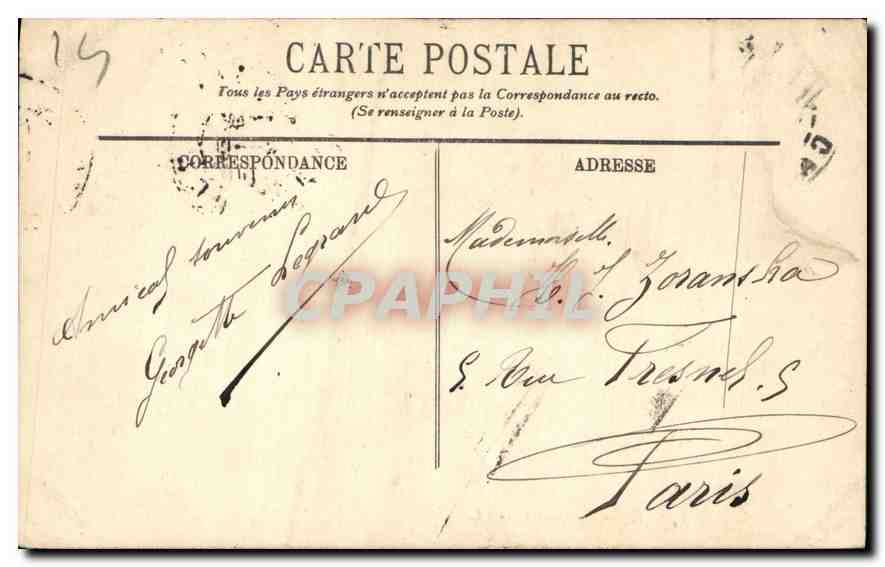 14
CARTE POSTALE
Tous les Pays étrangers n'acceptent pas la Correspondance au recto.
(Se renseigner à la Poste).
CORRESPONDANCE
Amical souvenir
Georgette Legrand
ADRESSE
Mademoiselle.
J. Zoranska
5. Rue Fresnel. 5
Paris
CPAPHIL